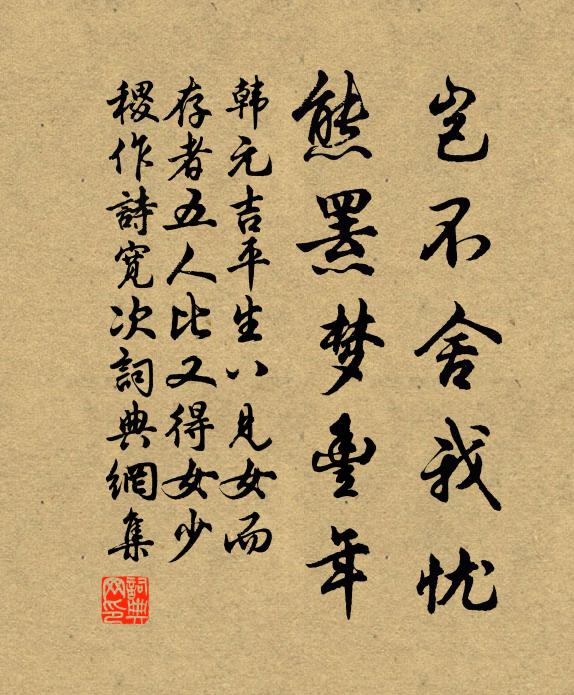 岂不舍我忧
熊罴梦豊年
韩元吉平生八見女而
存者五人比又得女少
稷作詩寬次詞典網集
詞典网印